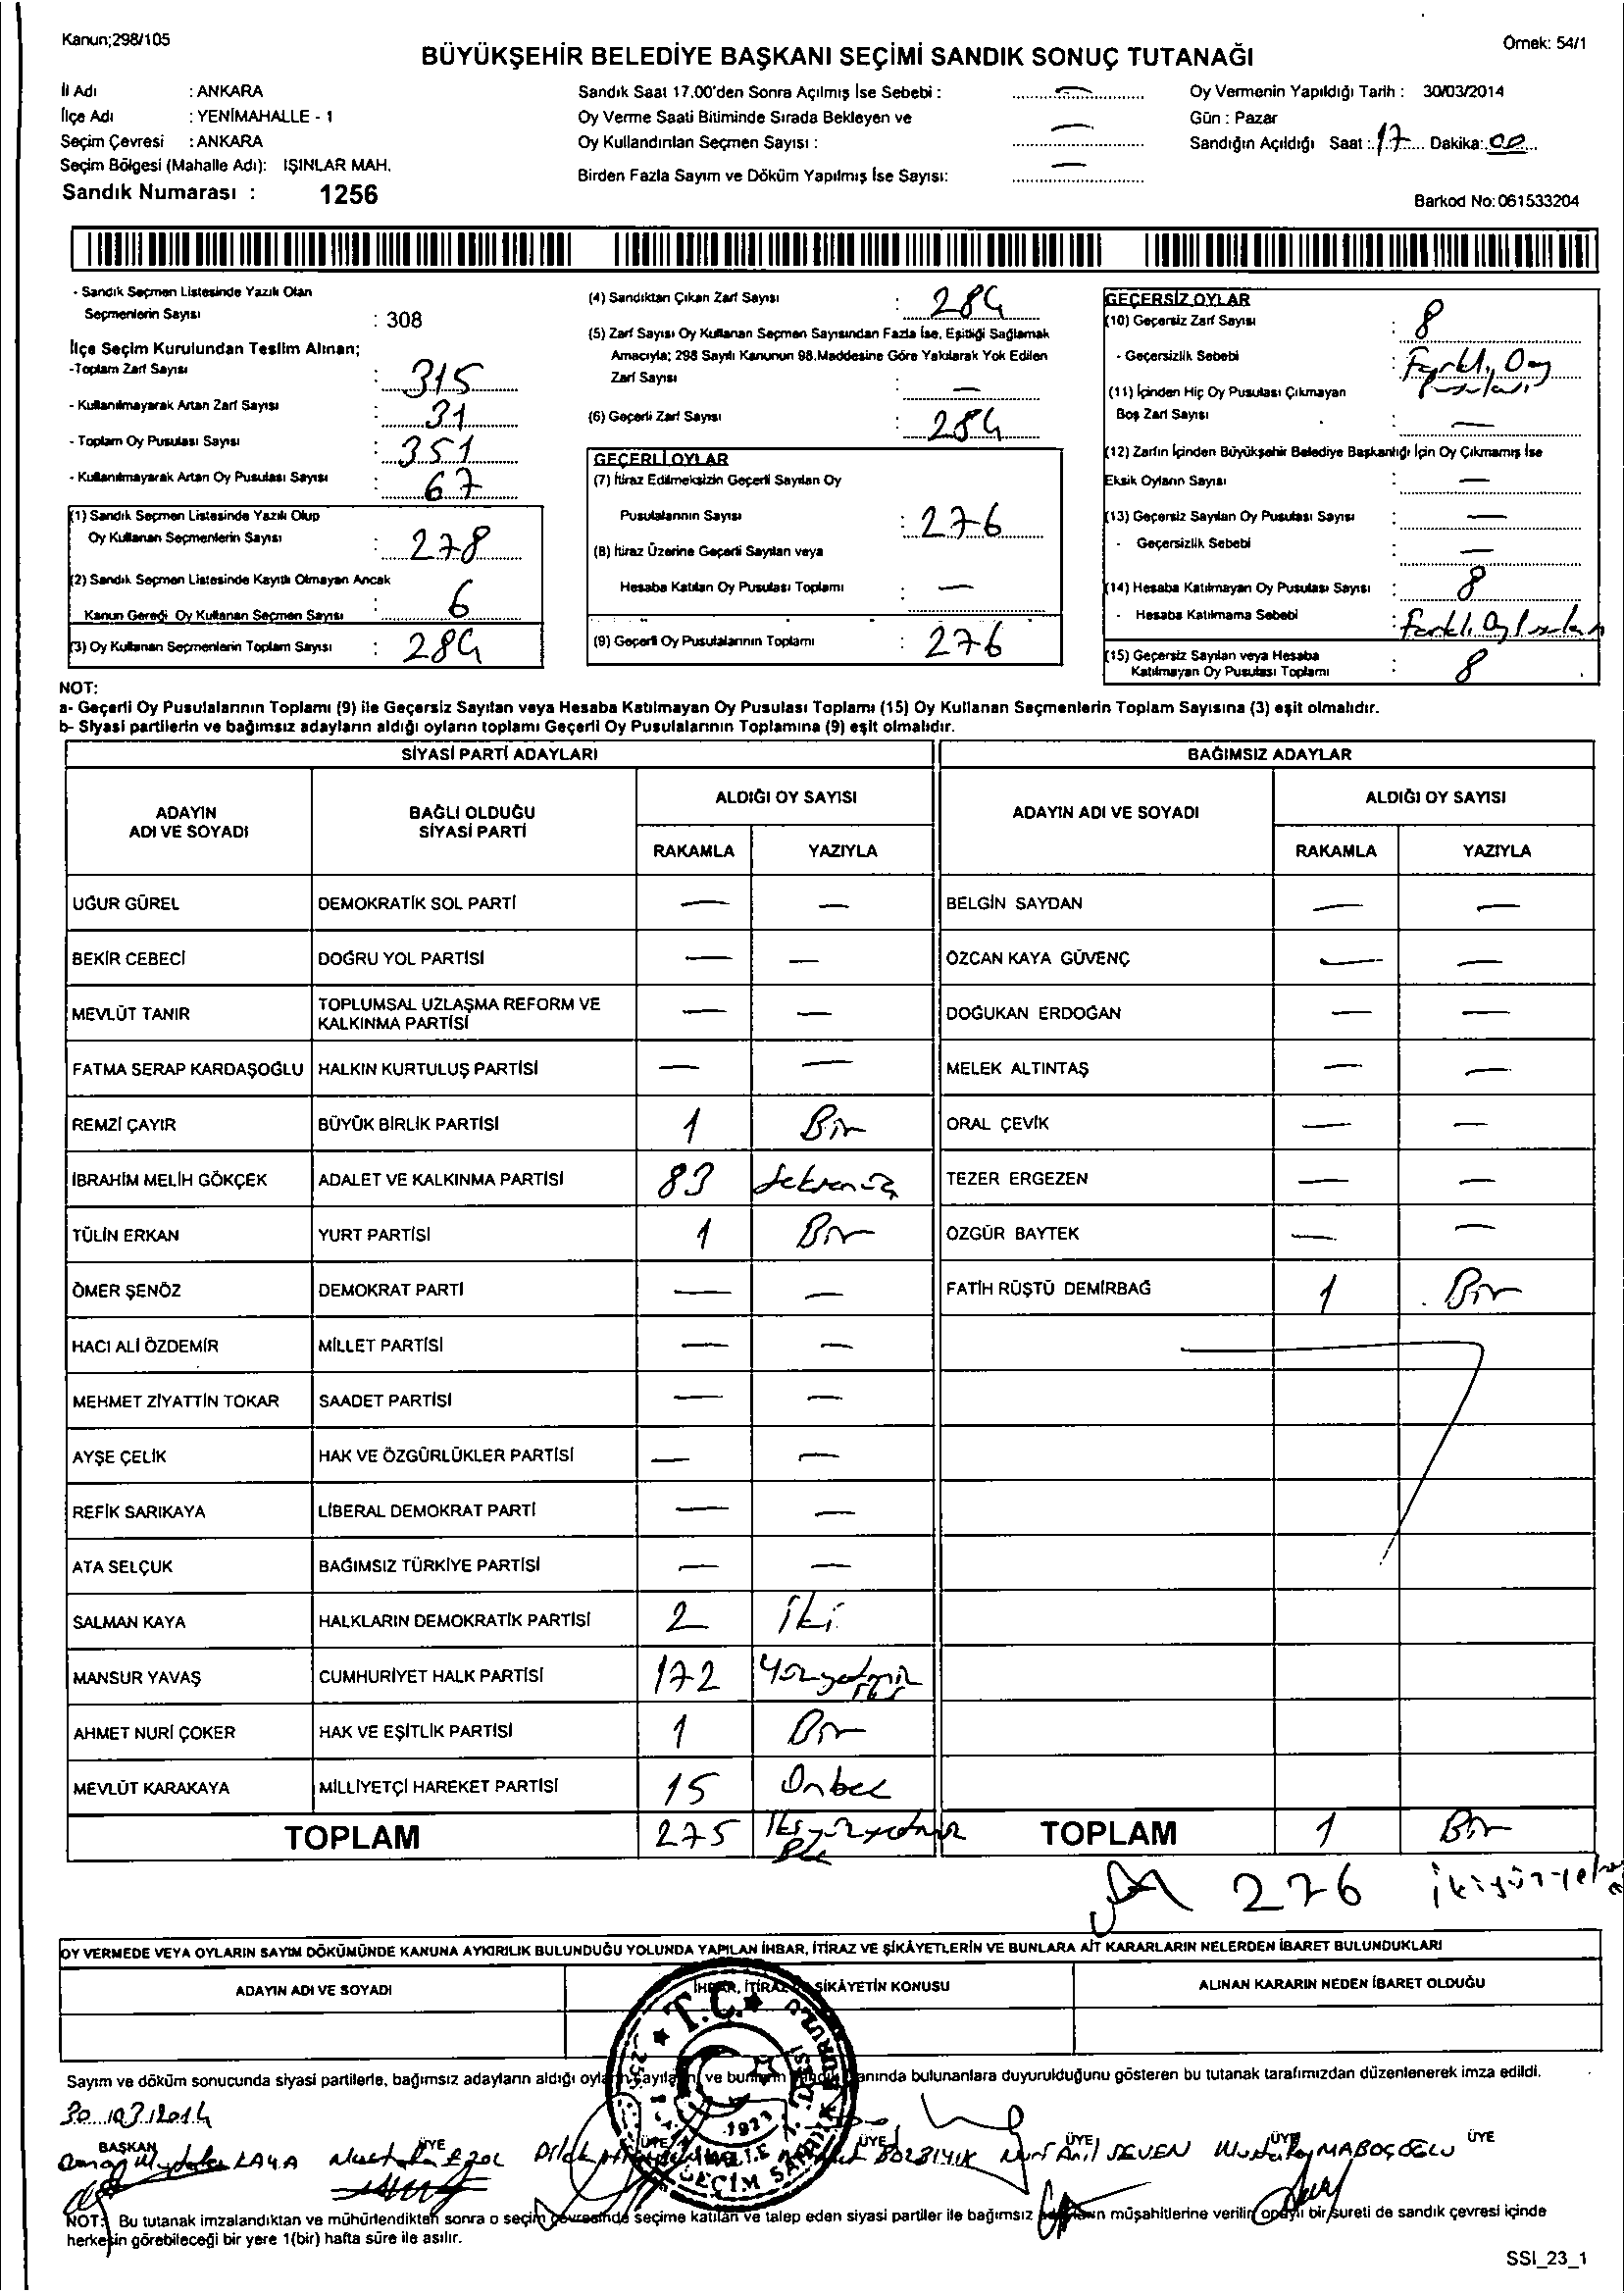 Kanun;298/105
Örnek: 54/1
BÜYÜKŞEHİR BELEDİYE BAŞKANI SEÇİMİ SANDIK SONUÇ TUTANAĞI
İl Adı : ANKARA
İlçe Adı : YENİMAHALLE - 1
Seçim Çevresi : ANKARA
Seçim Bölgesi (Mahalle Adı): IŞINLAR MAH.
Sandık Numarası : 1256
Sandık Saat 17.00'den Sonra Açılmış İse Sebebi : —
Oy Verme Saati Bitiminde Sırada Bekleyen ve
Oy Kullandırılan Seçmen Sayısı : —
Birden Fazla Sayım ve Döküm Yapılmış İse Sayısı: —
Oy Vermenin Yapıldığı Tarih : 30/03/2014
Gün : Pazar
Sandığın Açıldığı Saat : 17 Dakika: 00
Barkod No: 061533204
- Sandık Seçmen Listesinde Yazılı Olan
Seçmenlerin Sayısı : 308
İlçe Seçim Kurulundan Teslim Alınan;
-Toplam Zarf Sayısı : 315
- Kullanılmayarak Artan Zarf Sayısı : 31
- Toplam Oy Pusulası Sayısı : 351
- Kullanılmayarak Artan Oy Pusulası Sayısı : 67
(1) Sandık Seçmen Listesinde Yazılı Olup
Oy Kullanan Seçmenlerin Sayısı : 278
(2) Sandık Seçmen Listesinde Kayıtlı Olmayan Ancak
Kanun Gereği Oy Kullanan Seçmen Sayısı : 6
(3) Oy Kullanan Seçmenlerin Toplam Sayısı : 284
(4) Sandıktan Çıkan Zarf Sayısı : 284
(5) Zarf Sayısı Oy Kullanan Seçmen Sayısından Fazla İse, Eşitliği Sağlamak
Amacıyla; 298 Sayılı Kanunun 98.Maddesine Göre Yakılarak Yok Edilen
Zarf Sayısı : —
(6) Geçerli Zarf Sayısı : 284
GEÇERLİ OYLAR
(7) İtiraz Edilmeksizin Geçerli Sayılan Oy
Pusulalarının Sayısı : 276
(8) İtiraz Üzerine Geçerli Sayılan veya
Hesaba Katılan Oy Pusulası Toplamı : —
(9) Geçerli Oy Pusulalarının Toplamı : 276
GEÇERSİZ OYLAR
(10) Geçersiz Zarf Sayısı : 8
- Geçersizlik Sebebi : Farklı Oy
Pusulası
(11) İçinden Hiç Oy Pusulası Çıkmayan
Boş Zarf Sayısı : —
(12) Zarfın İçinden Büyükşehir Belediye Başkanlığı İçin Oy Çıkmamış İse
Eksik Oyların Sayısı : —
(13) Geçersiz Sayılan Oy Pusulası Sayısı : —
- Geçersizlik Sebebi : —
(14) Hesaba Katılmayan Oy Pusulası Sayısı : 8
- Hesaba Katılmama Sebebi : Farklı Oy
(15) Geçersiz Sayılan veya Hesaba
Katılmayan Oy Pusulası Toplamı : 8
NOT:
a- Geçerli Oy Pusulalarının Toplamı (9) ile Geçersiz Sayılan veya Hesaba Katılmayan Oy Pusulası Toplamı (15) Oy Kullanan Seçmenlerin Toplam Sayısına (3) eşit olmalıdır.
b- Siyasi partilerin ve bağımsız adayların aldığı oyların toplamı Geçerli Oy Pusulalarının Toplamına (9) eşit olmalıdır.
SİYASİ PARTİ ADAYLARI
ADAYIN
ADI VE SOYADI
BAĞLI OLDUĞU
SİYASİ PARTİ
ALDIĞI OY SAYISI
RAKAMLA YAZIYLA
UĞUR GÜREL DEMOKRATİK SOL PARTİ — —
BEKİR CEBECİ DOĞRU YOL PARTİSİ — —
MEVLÜT TANIR TOPLUMSAL UZLAŞMA REFORM VE
KALKINMA PARTİSİ — —
FATMA SERAP KARDAŞOĞLU HALKIN KURTULUŞ PARTİSİ — —
REMZİ ÇAYIR BÜYÜK BİRLİK PARTİSİ 1 Bir
İBRAHİM MELİH GÖKÇEK ADALET VE KALKINMA PARTİSİ 83 Seksenüç
TÜLİN ERKAN YURT PARTİSİ 1 Bir
ÖMER ŞENÖZ DEMOKRAT PARTİ — —
HACI ALİ ÖZDEMİR MİLLET PARTİSİ — —
MEHMET ZİYATTİN TOKAR SAADET PARTİSİ — —
AYŞE ÇELİK HAK VE ÖZGÜRLÜKLER PARTİSİ — —
REFİK SARIKAYA LİBERAL DEMOKRAT PARTİ — —
ATA SELÇUK BAĞIMSIZ TÜRKİYE PARTİSİ — —
SALMAN KAYA HALKLARIN DEMOKRATİK PARTİSİ 2 iki
MANSUR YAVAŞ CUMHURİYET HALK PARTİSİ 172
AHMET NURİ ÇOKER HAK VE EŞİTLİK PARTİSİ 1 Bir
MEVLÜT KARAKAYA MİLLİYETÇİ HAREKET PARTİSİ 15 Onbeş
TOPLAM 275
BAĞIMSIZ ADAYLAR
ADAYIN ADI VE SOYADI
ALDIĞI OY SAYISI
RAKAMLA YAZIYLA
BELGİN SAYDAN — —
ÖZCAN KAYA GÜVENÇ — —
DOĞUKAN ERDOĞAN — —
MELEK ALTINTAŞ — —
ORAL ÇEVİK — —
TEZER ERGEZEN — —
ÖZGÜR BAYTEK — —
FATİH RÜŞTÜ DEMİRBAĞ 1 Bir
TOPLAM 1 Bir
276
OY VERMEDE VEYA OYLARIN SAYIM DÖKÜMÜNDE KANUNA AYKIRILIK BULUNDUĞU YOLUNDA YAPILAN İHBAR, İTİRAZ VE ŞİKÂYETLERİN VE BUNLARA AİT KARARLARIN NELERDEN İBARET BULUNDUKLARI
ADAYIN ADI VE SOYADI
İHBAR, İTİRAZ ŞİKÂYETİN KONUSU
ALINAN KARARIN NEDEN İBARET OLDUĞU
T.C.
Sayım ve döküm sonucunda siyasi partilerle, bağımsız adayların aldığı oyların sayıları ve bunların sandık yanında bulunanlara duyurulduğunu gösteren bu tutanak tarafımızdan düzenlenerek imza edildi.
30/03/2014
BAŞKAN ÜYE ÜYE ÜYE ÜYE ÜYE ÜYE
KAYA Mustafa Dilek Nuri Anıl SEVEN
NOT: Bu tutanak imzalandıktan ve mühürlendikten sonra o seçim çevresinde seçime katılan ve talep eden siyasi partiler ile bağımsız adayların müşahitlerine verilir onaylı bir sureti de sandık çevresi içinde
herkesin görebileceği bir yere 1(bir) hafta süre ile asılır.
SSI_23_1